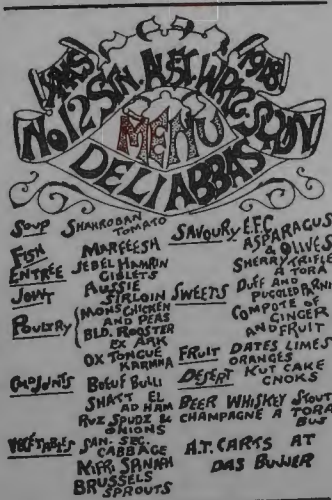 XMAS 1918
No 12 STN. AUST. WRLS. SQDN
MENU
DELI ABBAS
SOUP SHAHROBAN TOMATO
FISH MARFEESH
ENTRÉE JEBEL HAMRIN GIBLETS
JOINT AUSSIE SIRLOIN
POULTRY MONS CHICKEN AND PEAS
BLD. ROOSTER EX ARK
OX TONGUE KARNMA
COLD JOINTS BOEUF BULLI
SHATT EL AD HAM
RUZ SPUDZ & ONIONS
VEGETABLES SAN. SEC. CABBAGE
KIFRI SANAH
BRUSSELS SPROUTS
SAVOURY E.F.C ASPARAGUS & OLIVES
SWEETS SHERRY TRIFLE A TORA
DUFF AND PUGGLED
COMPOTE OF GINGER AND FRUIT
FRUIT DATES LIMES ORANGES
DESERT KUT CAKE
CNOKS
BEER WHISKEY STOUT
CHAMPAGNE A TORA BUS
A.T. CARTS AT
DAS BUWER